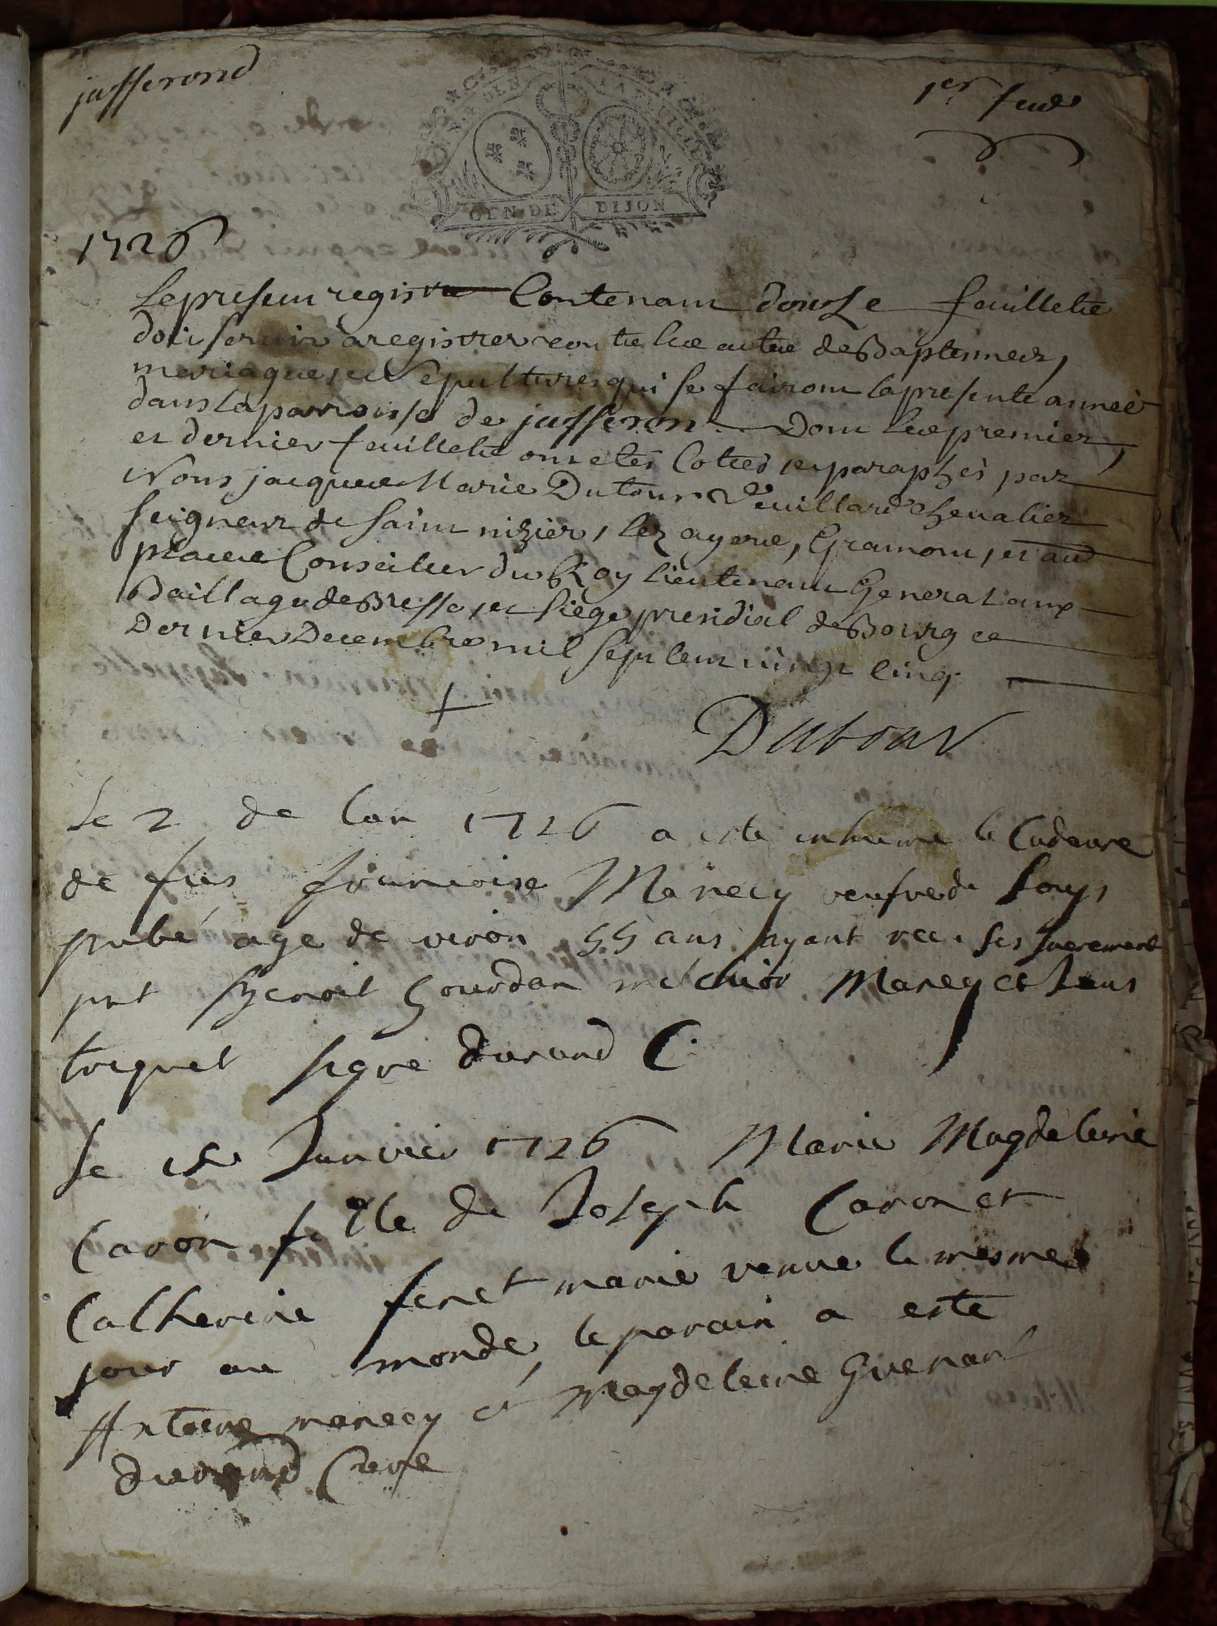 jasseron
1er feuil
GEN DE DIJON
1726
Le present registre Contenant douse feuillets
doit servir a registrer tous les actes de Baptemes,
mariages, et sepultures qui se feront la presente année
dans la parroisse de jasseron Dont les premier,
et dernier feuillets ont etes Cottes, et paraphés par
Nous jacques Marie Dutour Vuillard Chevalier
seigneur de saint nizier, , Gramont, et autres
places Conseiller du Roy lieutenant General aux
Baillage de Bresse, et siège presidial de Bourg ce
Dernier Decembre mil sept cent vingt cinq
Dutour
Le 2 de lan 1726 a este inhume le Cadavre
de francoise Manecy veufve de Louys
pubé age de viron 55 ans ayant recu ses sacrements
pnt Benoit Gourdan Manecy et
signe durand C.
Le Janvier 1726 Marie Magdeleine
Caron fille de Joseph Caron et
Catherine feret maries venue le mesme
jour au monde, le parain a este
Antoine manecy et Magdeleine Guenan
durand Cure